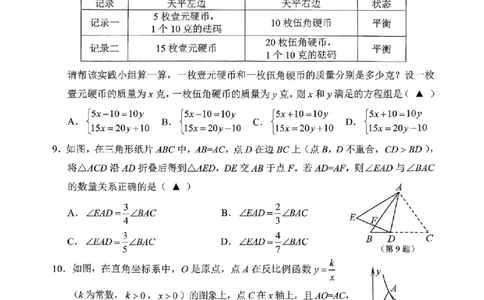 记录 天平左边 天平右边 状态
记录一 5枚壹元硬币，1个10克的砝码 10枚伍角硬币 平衡
记录二 15枚壹元硬币 20枚伍角硬币，1个10克的砝码 平衡
请帮该实践小组算一算，一枚壹元硬币和一枚伍角硬币的质量分别是多少克？设一枚
壹元硬币的质量为x克，一枚伍角硬币的质量为y克，则x和y满足的方程组是（ ▲ ）
A. {5x-10=10y 15x=20y+10 B. {5x-10=10y 15x=20y-10 C. {5x+10=10y 15x=20y+10 D. {5x+10=10y 15x=20y-10
9. 如图，在三角形纸片ABC中，AB=AC，点D在边BC上（点B，D不重合，CD＞BD），
将△ACD沿AD折叠后得到△AED，DE交AB于点F。若AD=AF，则∠EAD与∠BAC
的数量关系正确的是（ ▲ ）
A. ∠EAD=3/4∠BAC B. ∠EAD=2/3∠BAC
C. ∠EAD=3/5∠BAC D. ∠EAD=4/7∠BAC
A
E
F
B D C
（第9题）
10. 如图，在直角坐标系中，O是原点，点A在反比例函数y=k/x
（k为常数，k＞0，x＞0）的图象上，点C在x轴上，且AO=AC，
y
A